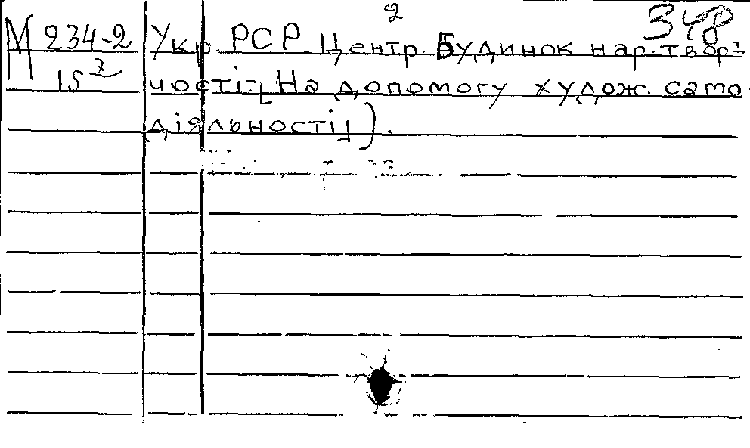 2 348
М 234-2 Укр. РСР. Центр. Будинок нар. твор-
15³ чості [На допомогу худож. само-
діяльності]).